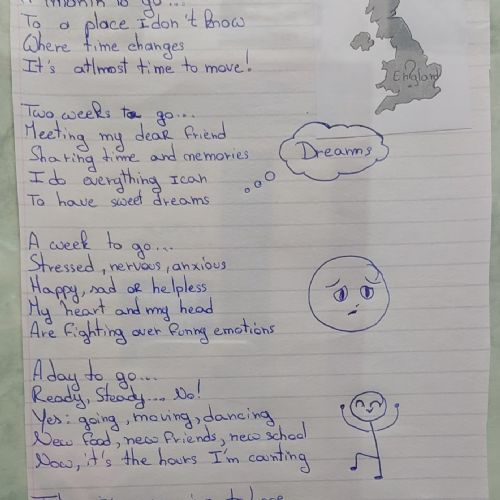 A month to go...
To a place I don't know
Where time changes
It's atlmost time to move!
England
Two weeks to go...
Meeting my dear friend
Sharing time and memories
I do everything I can
To have sweet dreams
Dreams
A week to go...
Stressed, nervous, anxious
Happy, sad or helpless
My heart and my head
Are fighting over funny emotions
A day to go...
Ready, Steady.... No!
Yes: going, moving, dancing
New food, new friends, new school
Now, it's the hours I'm counting